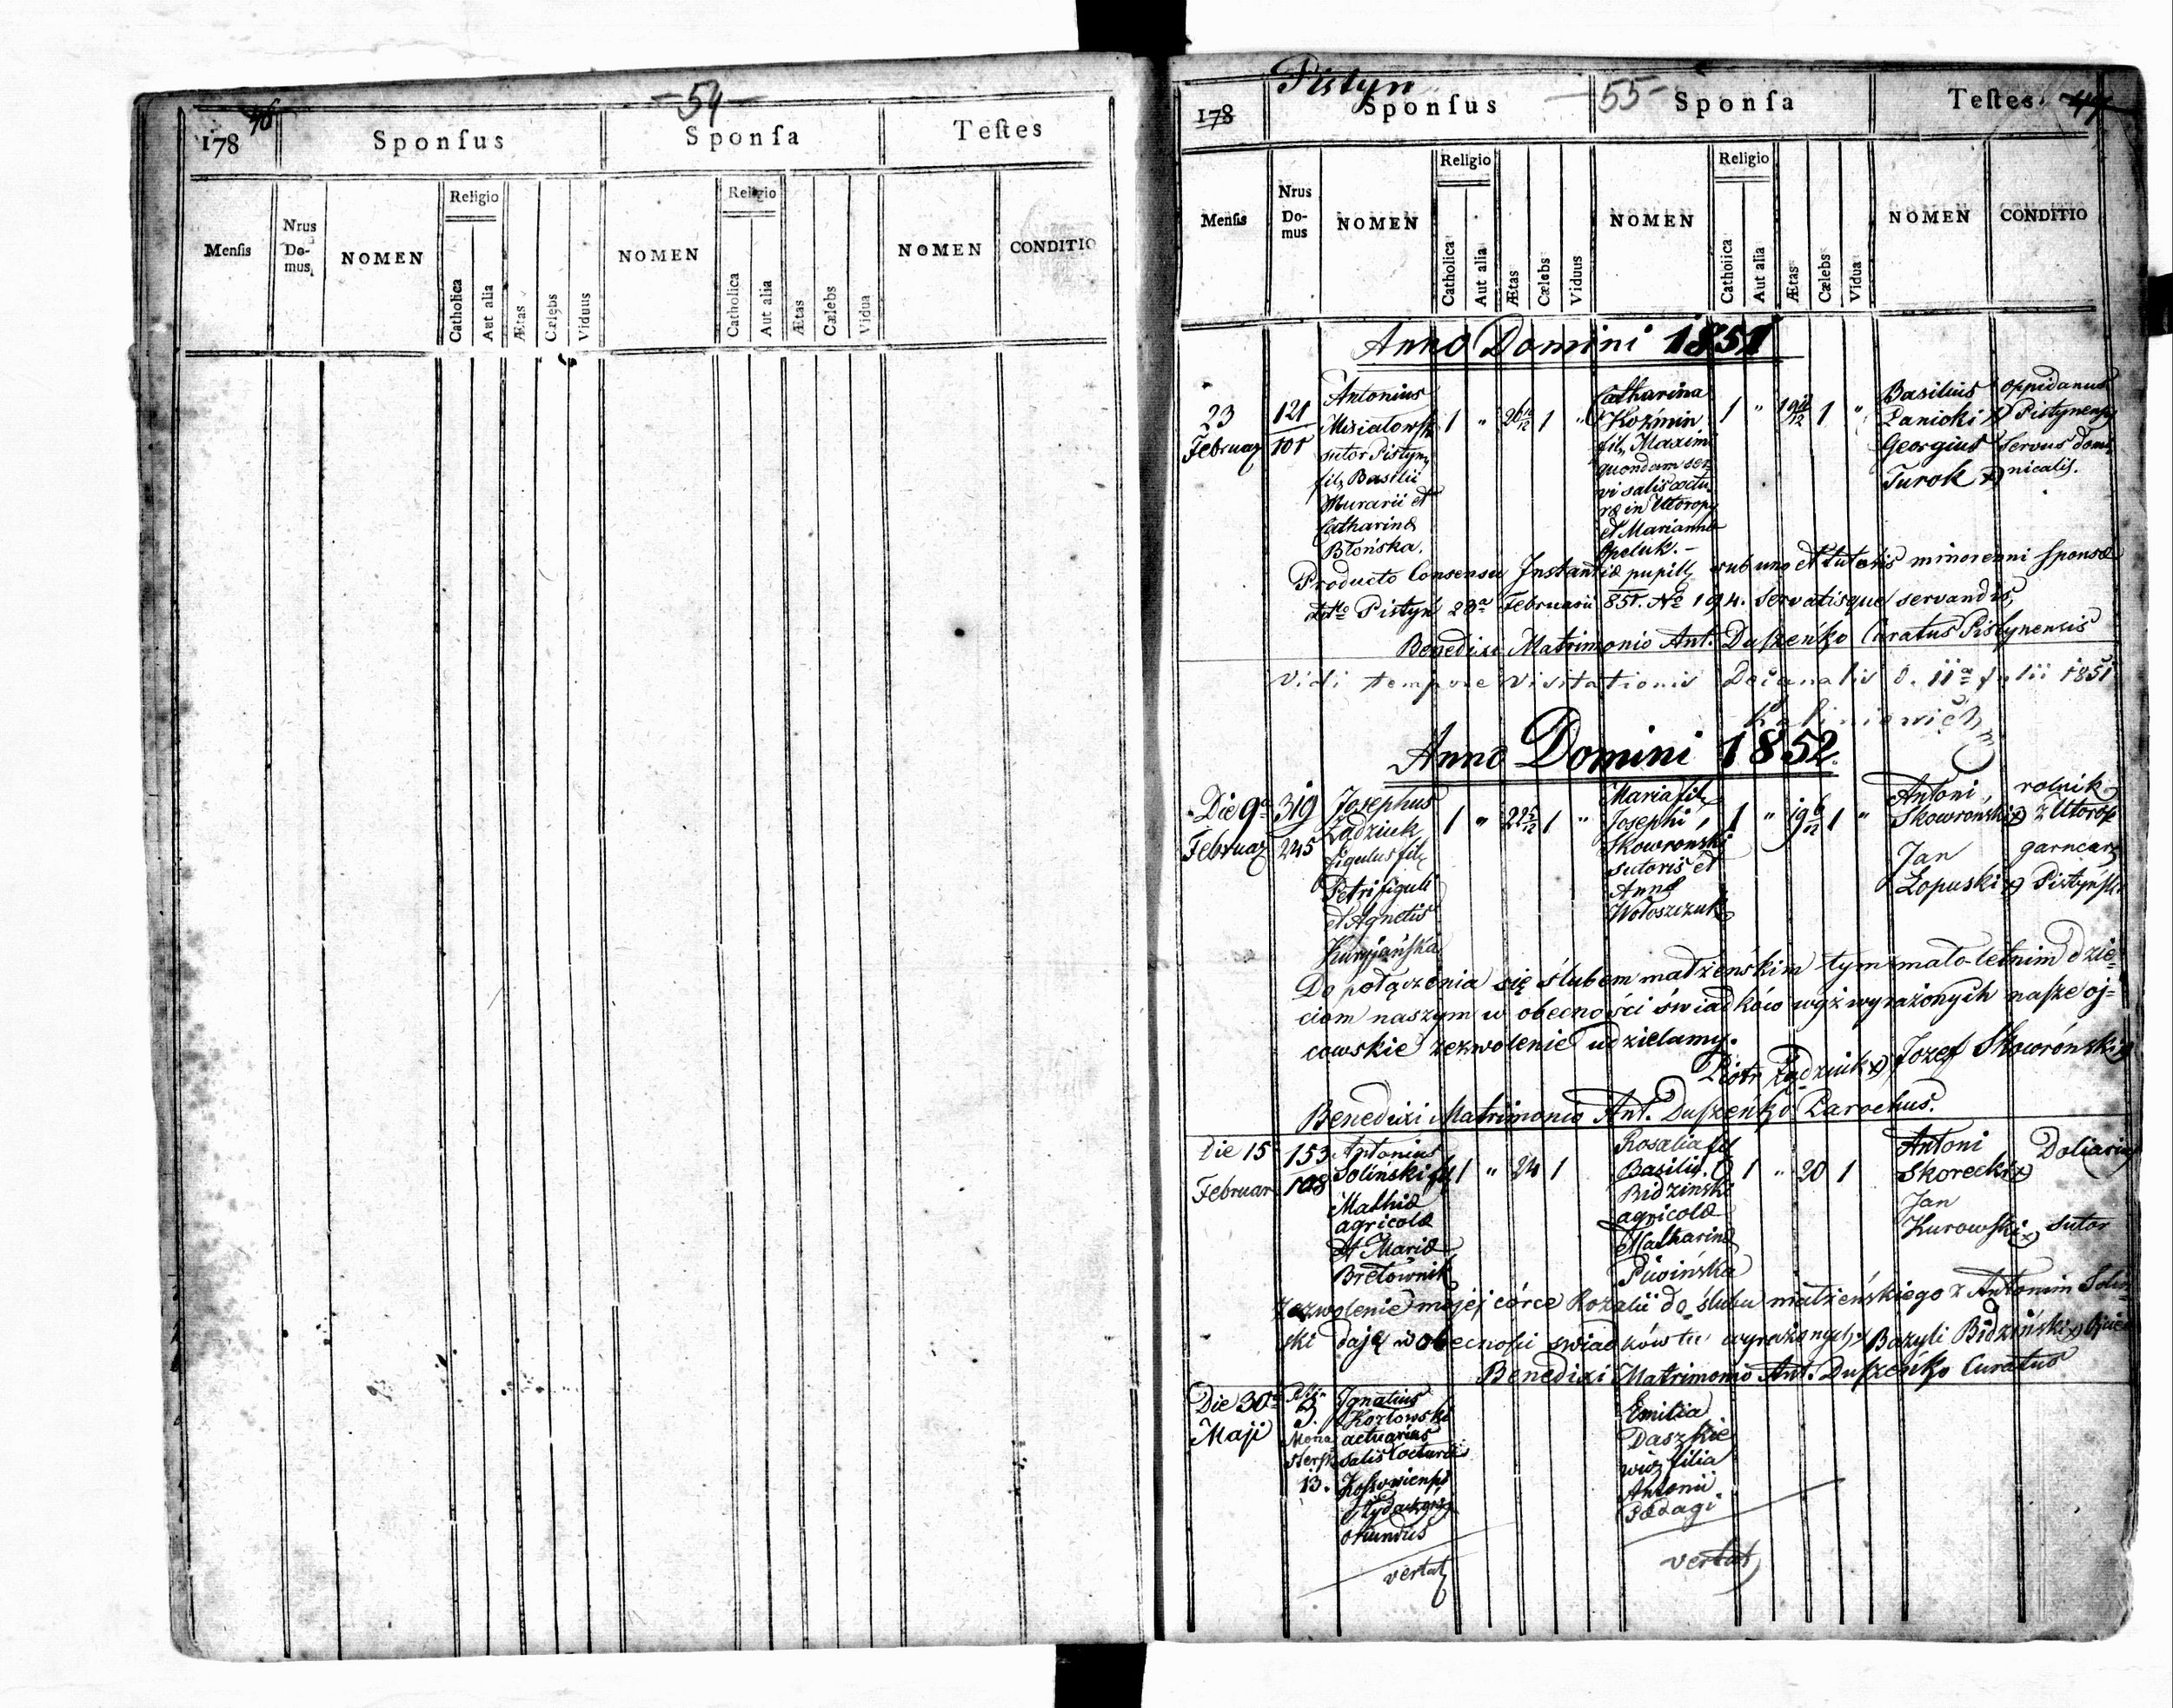 46
- 54 -
178 Sponſus Sponſa Teſtes
Menſis Nrus Do-mus, NOMEN Religio Catholica Aut alia Ætas Cælebs Viduus NOMEN Religio Catholica Aut alia Ætas Cælebs Vidua NOMEN CONDITIO
Pistyn
- 55 -
178 Sponſus Sponſa Teſtes
Menſis Nrus Do-mus NOMEN Religio Catholica Aut alia Ætas Cælebs Viduus NOMEN Religio Catholica Aut alia Ætas Cælebs Vidua NOMEN CONDITIO
Anno Domini 1851
23
Februar
121
101
Antonius
sutor Pistyn
fil. Basilii
Murarii et
Catharinæ
Błońska.
1 " 1 "
Catharina
Koźmin
fil. Maximi
quondam ser-
vi salis coctu-
ræ in Utoropy
et Marianna
Opeluk. -
1 " 1 "
Basilius
Panicki
Georgius
Turok
oppidanus
Pistynensis
servus domi-
nicalis.
Producto Consensu Instantiæ pupill. sub uno et tutoris minorenni sponsæ
dtto Pistyń 23a Februarii 851. No 194. servatisque servandis,
Benedixi Matrimonio Ant. Duſzeńko Curatus Pistynensis
Vidi tempore Visitationis Decanalis d. 11a Julii 1851
Kaliniewicz
Anno Domini 1852.
Die 9a
Februar
319
245
Josephus
Ządziuk
figulus fil.
Petri figuli
et Agnetis
Kuryjańſka
1 " 22 1 "
Maria fil.
Josephi
Skowroński
sutoris et
Annæ
Wołoszczuk
1 " 19 6/12 1 "
Antoni
Skowroński
Jan
Łopuski
rolnik
z Utorop
garncarz
Pistyńſki
Do połączenia się ślubem małżeńskim tym mało-letnim dzie-
ciom naszym w obecności świadków wyż wyrażonych naſze oj-
cowskie zezwolenie udzielamy.
Piotr Ządziuk Jozef Skowróński
Benedixi Matrimonio Ant. Duſzeńko Parochus.
Die 15
Februar
153
108
Antonius
Soliński fil.
Mathiæ
agricolæ
et Mariæ
Bretównik
1 " 24 1
Rosalia fil
Basilii
Bidzinski
agricolæ
et Catharinæ
Piwińska
1 " 20 1
Antoni
Skorecki
Jan
Kurowſki
Doliarius
sutor
Zezwolenie mojej córce Rozalii do ślubu małżeńskiego z Antonim Soliń-
ski daję w obecnoſci swiadków tu wyrażonych Bazyli Bidziński
Benedixi Matrimonio Ant. Duſzeńko Curatus
Die 30a
Maji
3.
13.
Ignatius
Kozłowski
actuarius
salis Cocturæ
oriundus
vertat
Emilia
Daszkie
wicz filia
Antonii
Pædagi
vertat